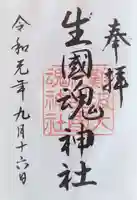 奉拝
生國魂神社
令和元年九月十六日